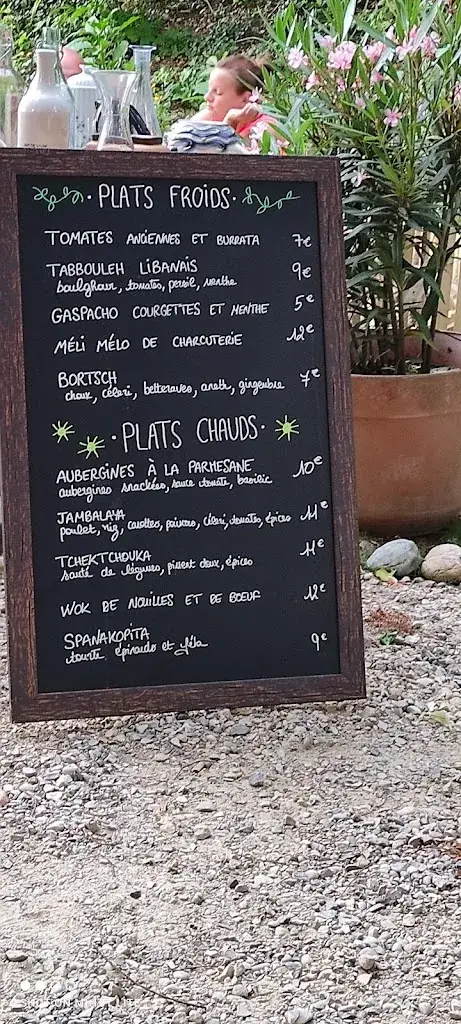 PLATS FROIDS
TOMATES ANCIENNES ET BURRATA 7€
TABBOULEH LIBANAIS 9€
boulghour, tomates, persil, menthe
GASPACHO COURGETTES ET MENTHE 5€
MÉLI MÉLO DE CHARCUTERIE 12€
BORTSCH 7€
choux, céleri, betteraves, aneth, gingembre
PLATS CHAUDS
AUBERGINES À LA PARMESANE 10€
aubergines snackées, sauce tomate, basilic
JAMBALAYA 11€
poulet, riz, carottes, poivrons, céleri, tomates, épices
TCHEKTCHOUKA 11€
sauté de légumes, piment doux, épices
WOK DE NOUILLES ET DE BOEUF 12€
SPANAKOPITA 9€
tourte épinards et féta